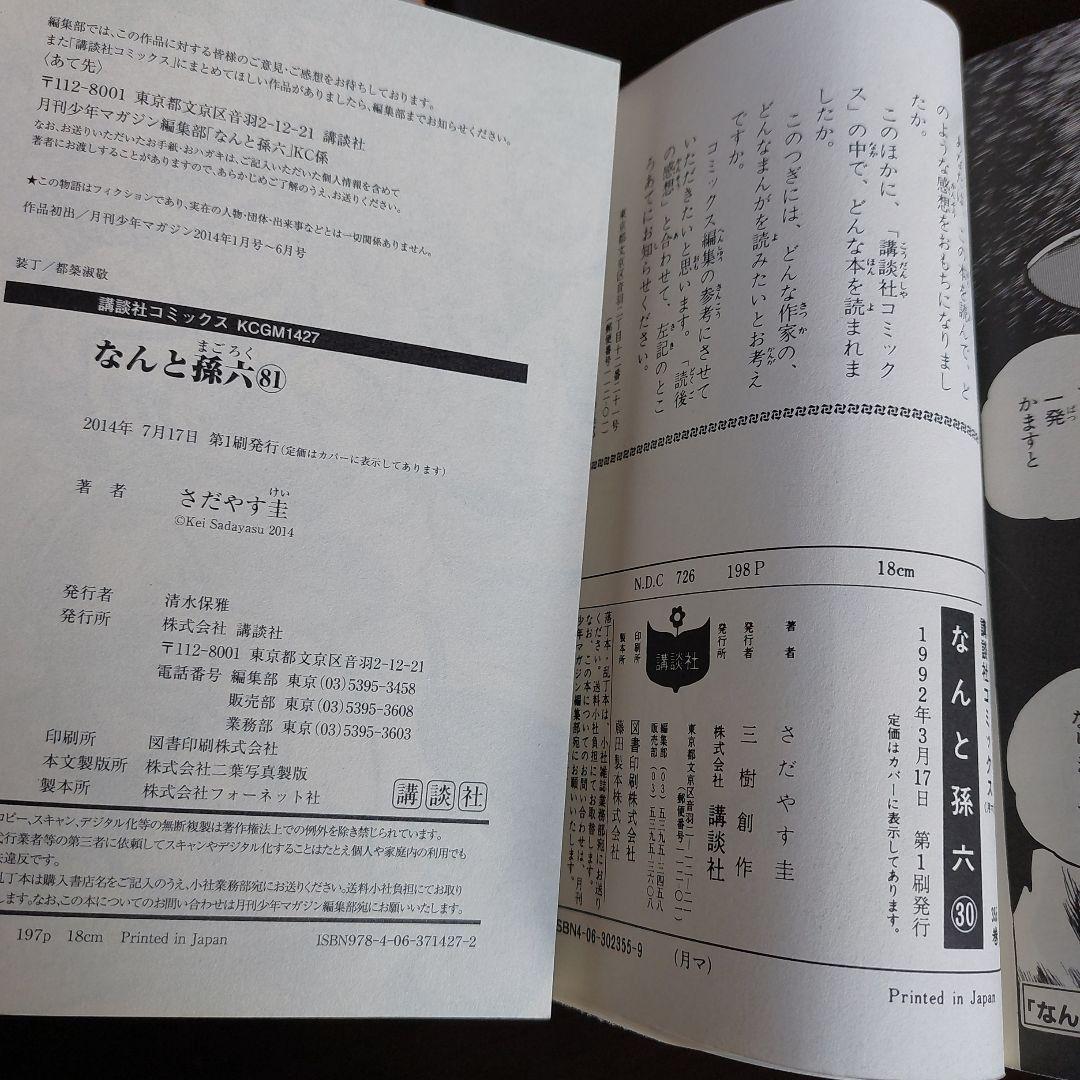 編集部では、この作品に対する皆様のご意見・ご感想をお待ちしております。
また「講談社コミックス」にまとめてほしい作品がありましたら、編集部までお知らせください。
〈あて先〉
〒112-8001 東京都文京区音羽2-12-21 講談社
月刊少年マガジン編集部「なんと孫六」KC係
なお、お送りいただいたお手紙・おハガキは、ご記入いただいた個人情報を含めて
著者にお渡しすることがありますので、あらかじめご了解のうえ、お送りください。
★この物語はフィクションであり、実在の人物・団体・出来事などとは一切関係ありません。
作品初出／月刊少年マガジン2014年1月号〜6月号
装丁／都築淑敬
講談社コミックス KCGM1427
なんと孫六㉛
まごろく
2014年 7月17日 第1刷発行(定価はカバーに表示してあります)
著者 さだやす圭
けい
©Kei Sadayasu 2014
発行者 清水保雅
発行所 株式会社 講談社
〒112-8001 東京都文京区音羽2-12-21
電話番号 編集部 東京(03)5395-3458
販売部 東京(03)5395-3608
業務部 東京(03)5395-3603
印刷所 図書印刷株式会社
本文製版所 株式会社二葉写真製版
製本所 株式会社フォーネット社
講談社
コピー、スキャン、デジタル化等の無断複製は著作権法上での例外を除き禁じられています。
代行業者等の第三者に依頼してスキャンやデジタル化することはたとえ個人や家庭内の利用でも
違反です。
乱丁本は購入書店名をご記入のうえ、小社業務部宛にお送りください。送料小社負担にてお取り
します。なお、この本についてのお問い合わせは月刊少年マガジン編集部宛にお願いいたします。
197p 18cm Printed in Japan ISBN978-4-06-371427-2
のような感想をおもちになりまし
たか。
このほかに、「講談社コミック
ス」の中で、どんな本を読まれま
したか。
このつぎには、どんな作家の、
どんなまんがを読みたいとお考え
ですか。
コミックス編集の参考にさせて
いただきたいと思います。「読後
の感想」と合わせて、左記のとこ
ろあてにお知らせください。
東京都文京区音羽二丁目十二番二十一号
(郵便番号一一二‐〇一)
N.D.C 726 198P 18cm
講談社コミックス
なんと孫六㉚
1992年3月17日 第1刷発行
定価はカバーに表示してあります。
著者 さだやす圭
発行者 三樹創作
発行所 株式会社 講談社
東京都文京区音羽二‐一二‐二一
(郵便番号一一二‐〇一)
編集部(〇三)五三九五‐三四五八
販売部(〇三)五三九五‐三六〇八
印刷所 図書印刷株式会社
製本所 藤田製本株式会社
講談社
落丁本・乱丁本は、小社雑誌業務部宛にお送り
ください。送料小社負担にてお取替します。
なお、この本についてのお問い合わせは、月刊
少年マガジン編集部宛にお願いいたします。
ISBN4-06-302355-9 (月マ)
Printed in Japan
一発
かますと
「なん